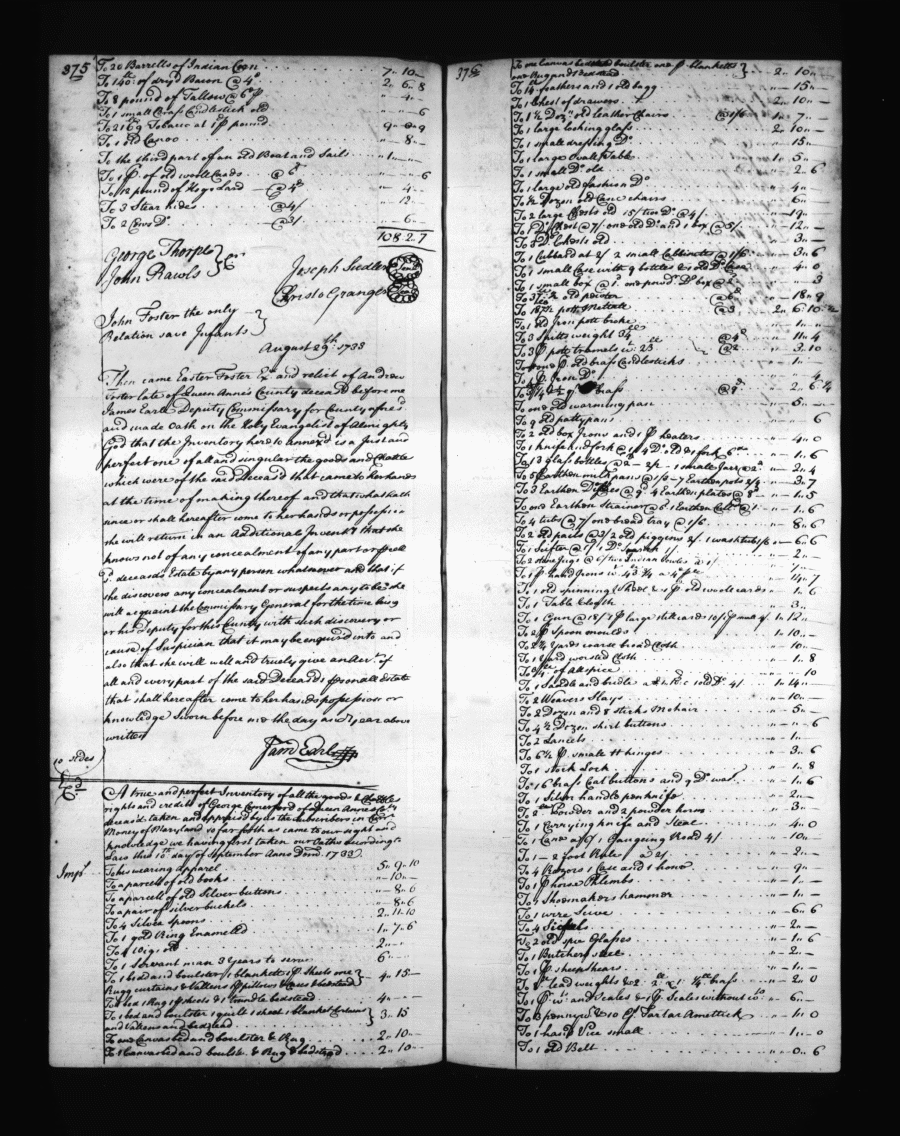 375
To 20 Barrells of Indian Corn 7 " 10 "
To 140 lb of dry'd Bacon @ 4d 2 " 6 " 8
To 8 pound of Tallow @ 6d " 4 "
To 1 small Brass Candlestick old " " 6
Tobaco at 1d pound 9 "
To 1 old Canoo " 8 "
To the third part of an old Boat and Sails " 1 "
To 1 P of old wooll Cards @ 6d " " 6
To 12 pound of Hogs Lard @ 4d " 4 "
To 3 Stear hides @ 4/ " 12 "
To 2 Cows Do @ 3/ " 6 "
108 . 2 . 7
George Thorple
John Rawls } Crs
Joseph Sudler
Christo Granger
John Foster the only
Relation save Infants }
August 29th 1733
Then came Easter Foster Ex and relict of Andrew
Foster late of Queen Anne's County deceas'd before me
James Earle Deputy Commissary for County afores'd
and made Oath on the Holy Evangelist of Almighty
God that the Inventory hereto annex'd is a Just and
perfect one of all and singular the goods and Chattles
which were of the said deceas'd that came to her hands
at the time of making thereof and that what hath
since or shall hereafter come to her hands or possession
she will return in an Additional Inventry that she
knows not of any concealment of any part or
Sd deceasds Estate by any person whatsoever and that if
she discovers any concealment or suspects any to be she
will acquaint the Commissary General for the time being
or his Deputy for this County with such discovery or
cause of Suspician that it may be enquired into and
also that she will well and truely give an Acct of
all and every part of the said Deceasds personall Estate
that shall hereafter come to her hands possession or
knowledge Sworn before me the day and year above
written
Jam Earle
10 sides
A true and perfect Inventory of all the goods & Chattles
rights and credits of George Comerford of Queen Anne's Co
deceas'd taken and apprised by us the subscribers in Curr
Money of Maryland so far forth as came to our sight and
knowledge we haveing first taken our Oaths according to
Law this 10th day of September Anno Dom 1733
Imps
To his wearing apparel 5 " 9 " 10
To a parcell of old books " 10 "
To a parcell of old Silver buttons " 8 " 6
To a pair of silver buckels " 8 " 6
To 4 Silver spoons 2 " 11 " 10
To 1 gold Ring Enameled 1 " 7 " 6
To 4 old 2 "
To 1 Servant man 3 Years to serve 6 "
To 1 bed and boulster 1 blankett 1 P Sheets one
Rugg curtains & Vallens 2 pillows & Cases & bedsted } 4 " 15 "
To 1 bed 1 Rug 1 P sheets & 1 trundle bedstead 4 "
To 1 bed and boulster 1 quilt 1 sheet 1 blanket Curtains
and Valens and bedstead } 3 " 15
To one Canvas bed and boulster & Rug 2 " 10 "
To 1 Canvas bed and boulstr & Rug & bedstead 2 " 10 "
376
To one Canvas bed boulster one P blanketts
one Rug and bedstead } 2 " 10 "
To 14 lb feathers and 1 old bagg " 15 "
To 1 Chest of drawers 2 " 10 "
To 1 ½ Dozn old leather Chairs @ 1/6 1 " 7 "
To 1 large looking glass 2 " 10 "
To 1 small dressing Do " 15 "
To 1 large Ovall Table 1 " 5 "
To 1 small Do old " 2 " 6
To 1 large old fashion Do " 4 "
To ½ Dozen old Cane chairs " 6 "
To 2 large Chests old 15/ two Do @ 4/ " 19 "
To 1 Do Chest @ 7/ one old Do and 1 box @ 5/ " 12 "
To 3 Do Chests old " 3 "
To 1 Cubbard at 2/ 2 small Cabbinetts @ 1/6 " 3 " 6
To 1 small Case with 9 bottles & 1 old Do Case " 4 " 0
To 1 small box @ 1d one powdr Do box @ " " 3
To 37 ½ old pewter @ 6d " 18 " 9
To pott Mettall @ 3 2 " 6 " 10
To 1 old Iron pott broke " 1 "
To 3 Spitts weight 34 @ 4d " 11 " 4
To 3 P pott tramels wt 23 @ 2 " 3 " 10
To one P old brass Candlesticks " 1 "
To 1 P Iron Do " " 4
To brass @ 9d 2 " 6
To one old warming pan " 5 "
To 9 old pattypans " " 6
To 2 old box Irons and 1 P heaters " 4 " 0
To 1 knife and fork 9 Do old & 1 fork 6d " 1 " 6
To 13 glass bottles @ 2 1 small Jarr @ 2d " 2 " 4
To 5 Earthen milk pans @ 7 Earthen potts " 3 " 7
To 3 Earthen Dishes @ 9d 4 Earthen plates @ 8d " 1 " 5
To one Earthen Strainer @ 6d 1 Earthen @ 1 " 1 " 6
To 4 tubs @ 7/ one bread tray @ 1/6 " 8 " 6
To 2 old pails @ 2/ 2 old piggons 2/ 1 wash tub 2/6 " 6 " 6
To 1 Sifter @ 1/ 1 Do 1/ " 2 "
To 2 stone Jugs @ 6/ two Indian bowles a 1/ " 7 "
To 1 P hand Irons wt 43 ¾ a 4d " 14 " 7
To 1 old spenning Wheel & 1 P old wool cards " 1 " 6
To 1 Table Cloth " 3 "
To 1 Gun @ 18/ 1 P large stillards 10/ 1 P small 4/ 1 " 12 "
To 2 P Spoon moulds 1 " 10 "
To 2 ¼ Yards coarse broad Cloth " 10 "
To 1 yard worsted Cloth " 1 " 8
To of Allspice " " 10
To 1 Saddle and bridle 1 old Do 4/ 1 " 14 "
To 2 Weavers Slays " 10 "
To 2 Dozen and 8 sticks Mohair " 5 "
To 4 ½ Dozen shirt buttons " " 6
To 2 Lancets " 1 "
To 6 ½ P small H hinges " 3 " 6
To 1 stock Lock " 1 " 8
To 16 brass Coat buttons and 9 Do was " 1 " 6
To 1 Silver handle penknife " 2 "
To 2 lb Powder and 2 powder horns " 3 "
To 1 Currying knife and Steal " 4 " 0
To 1 Cane a 6/ 1 Gaugeing Road 4/ " 10 "
To 1 2 foot Rule a 2/ " 2 "
To 4 Razors 1 Case and 1 hone " 9 "
To 1 P horse Phlembs " 1 "
To 1 Shoemakers hammer " 1 "
To 1 wire Sieve " 6 " 6
To 4 Sickels " 2 "
To 2 old spec Glasses " 1 " 6
To 1 Butchers steel " 2 "
To 1 P sheep shears " 1 "
To lead weights & 2 brass " 2 " 0
To 1 P wts and Scales & 1 P Scales without wts " 6 "
To & 10 P Tartar Amettick " 1 " 0
To 1 hand Vice small " 1 " 0
To 1 old Belt " 0 " 6